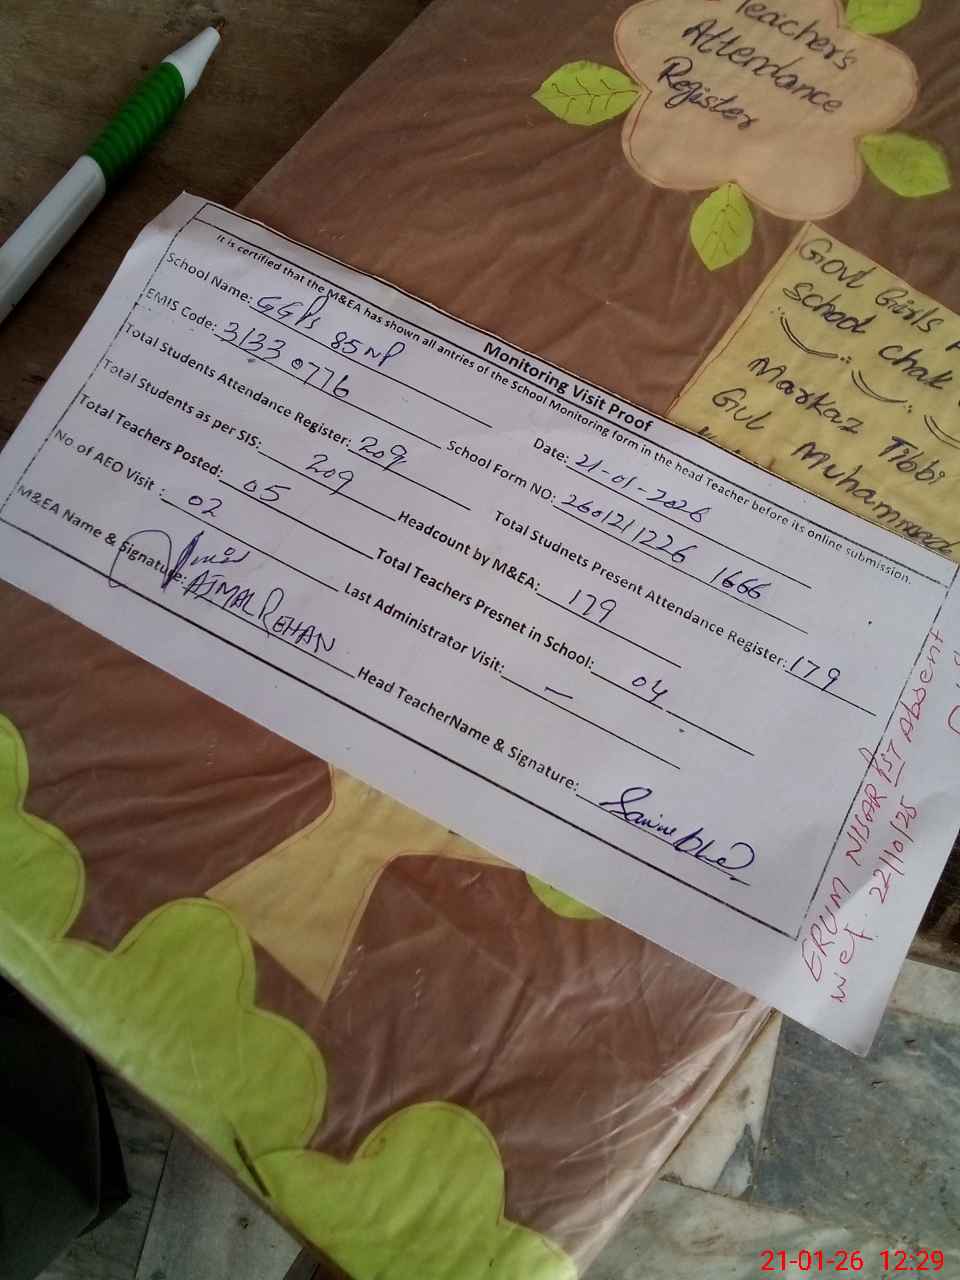 Teacher's
Attendance
Register
Govt Girls
School Chak
Markaz Tibbi
Gul Muhammad
Monitoring Visit Proof
It is certified that the M&EA has shown all antries of the School Monitoring form in the head Teacher before its online submission.
School Name: GGPS 85 NP Date: 21-01-2026
EMIS Code: 31330776 School Form NO: 2601211226 1666
Total Students Attendance Register: 209 Total Studnets Present Attendance Register: 179
Total Students as per SIS: 209 Headcount by M&EA: 179
Total Teachers Posted: 05 Total Teachers Presnet in School: 04
No of AEO Visit : 02 Last Administrator Visit: –
M&EA Name & Signature: AJMAL REHAN Head TeacherName & Signature:
ERUM NISAR PST Absent
wef. 22/10/25
21-01-26 12:29